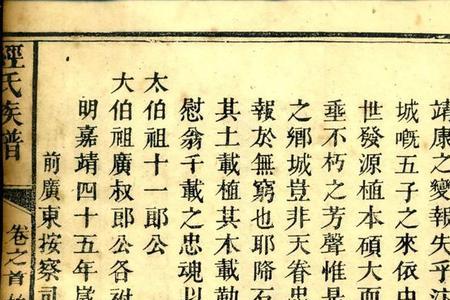 靖康之變報失乎
城嘅五子之來依中
世發源植本碩大而
垂不朽之芳聲惟是
之鄉城豈非天眷忠
報於無窮也耶降石
其土載植其本載勒
慰翁千載之忠魂以
太伯祖十一郎公
大伯祖廣叔郎公各祔
明嘉靖四十五年歲
前廣東按察司
氏族譜
卷之首